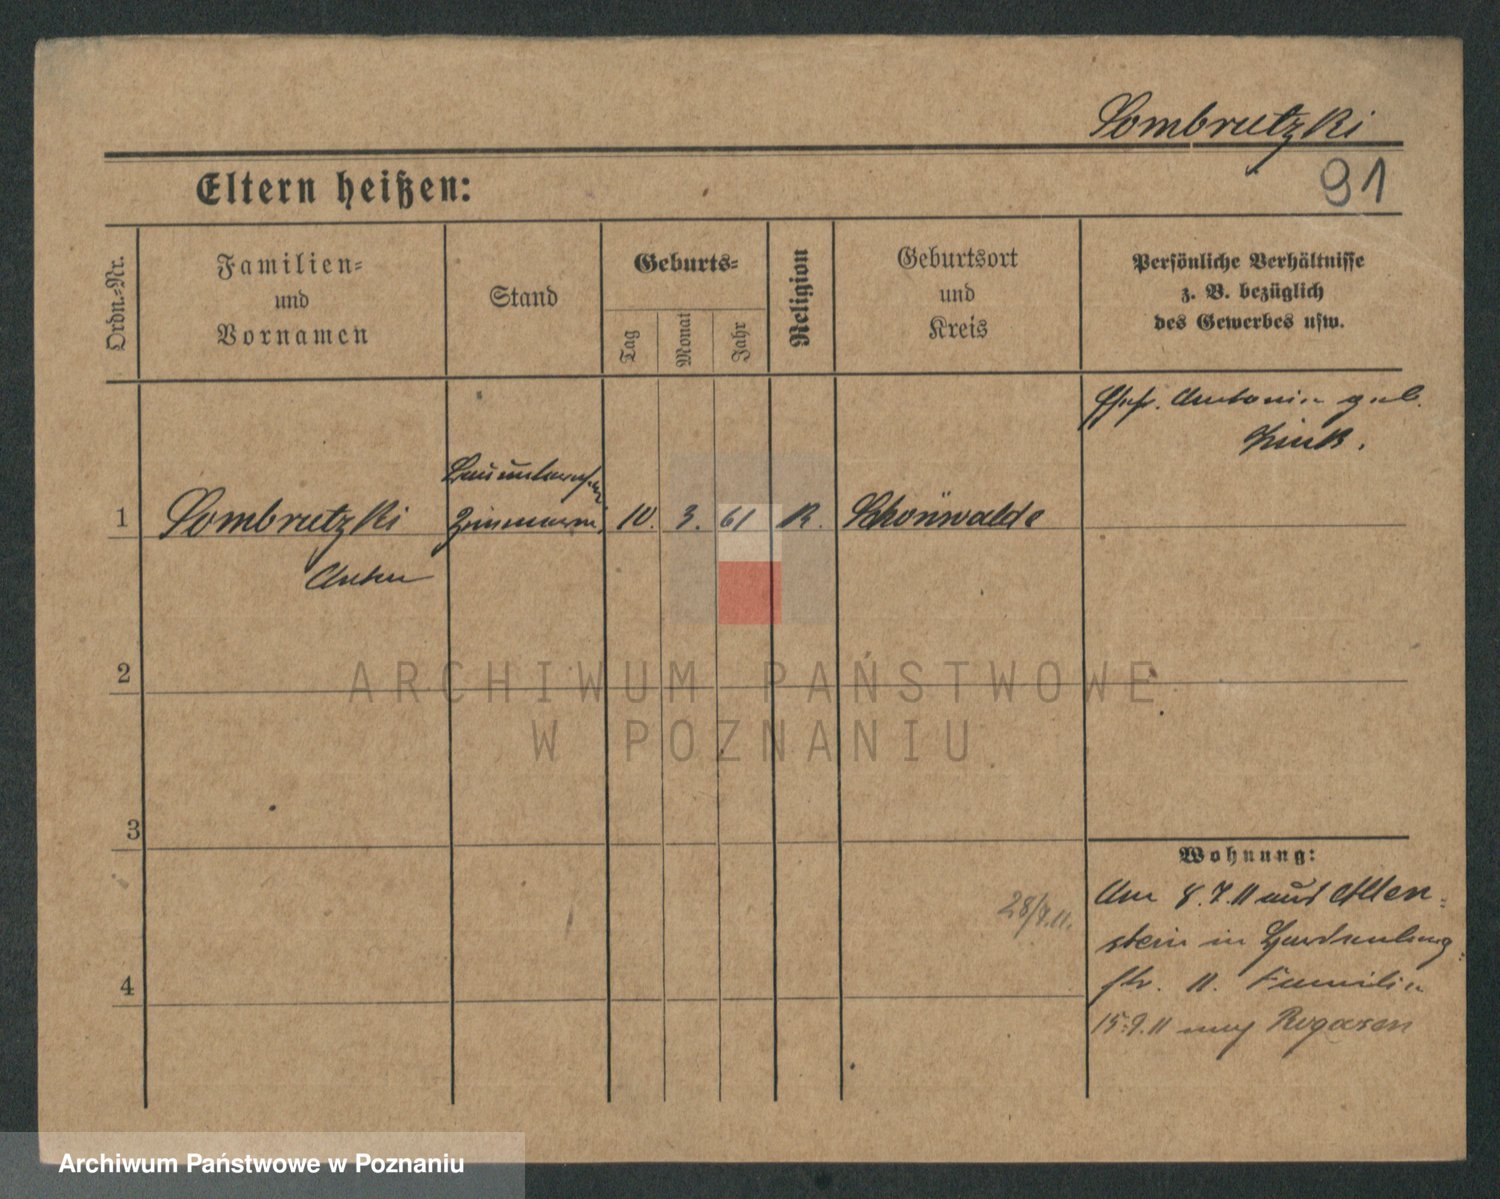 Sombrutzki
91
Eltern heißen:
Ordn.-Nr.
Familien-
und
Vornamen
Stand
Geburts-
Tag
Monat
Jahr
Religion
Geburtsort
und
Kreis
Persönliche Verhältnisse
z. B. bezüglich
des Gewerbes usw.
Ehefr. Antonie geb.
Link.
1
Sombrutzki
Anton
10.
3.
61
R.
Schönwalde
2
ARCHIWUM PAŃSTWOWE
W POZNANIU
3
4
28/9.11.
Wohnung:
Am 8.7.11 aus Allen-
stein in
str. 11. Familie
15.9.11 nach Rogasen
Archiwum Państwowe w Poznaniu